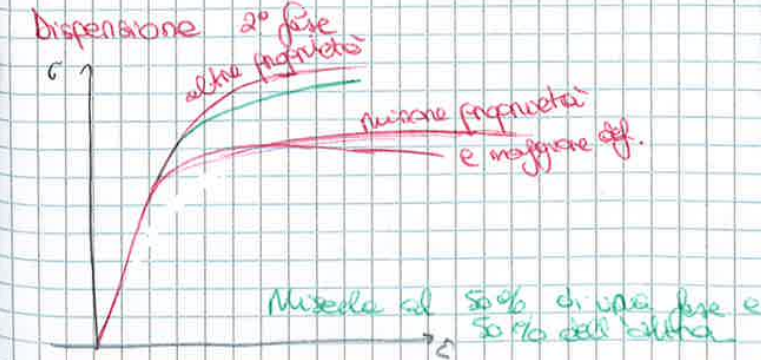 Dispersione 2° fase
altre proprietà
σ
minore proprietà
e maggiore def.
Miscela al 50% di una fase e
50% dell'altra
ε